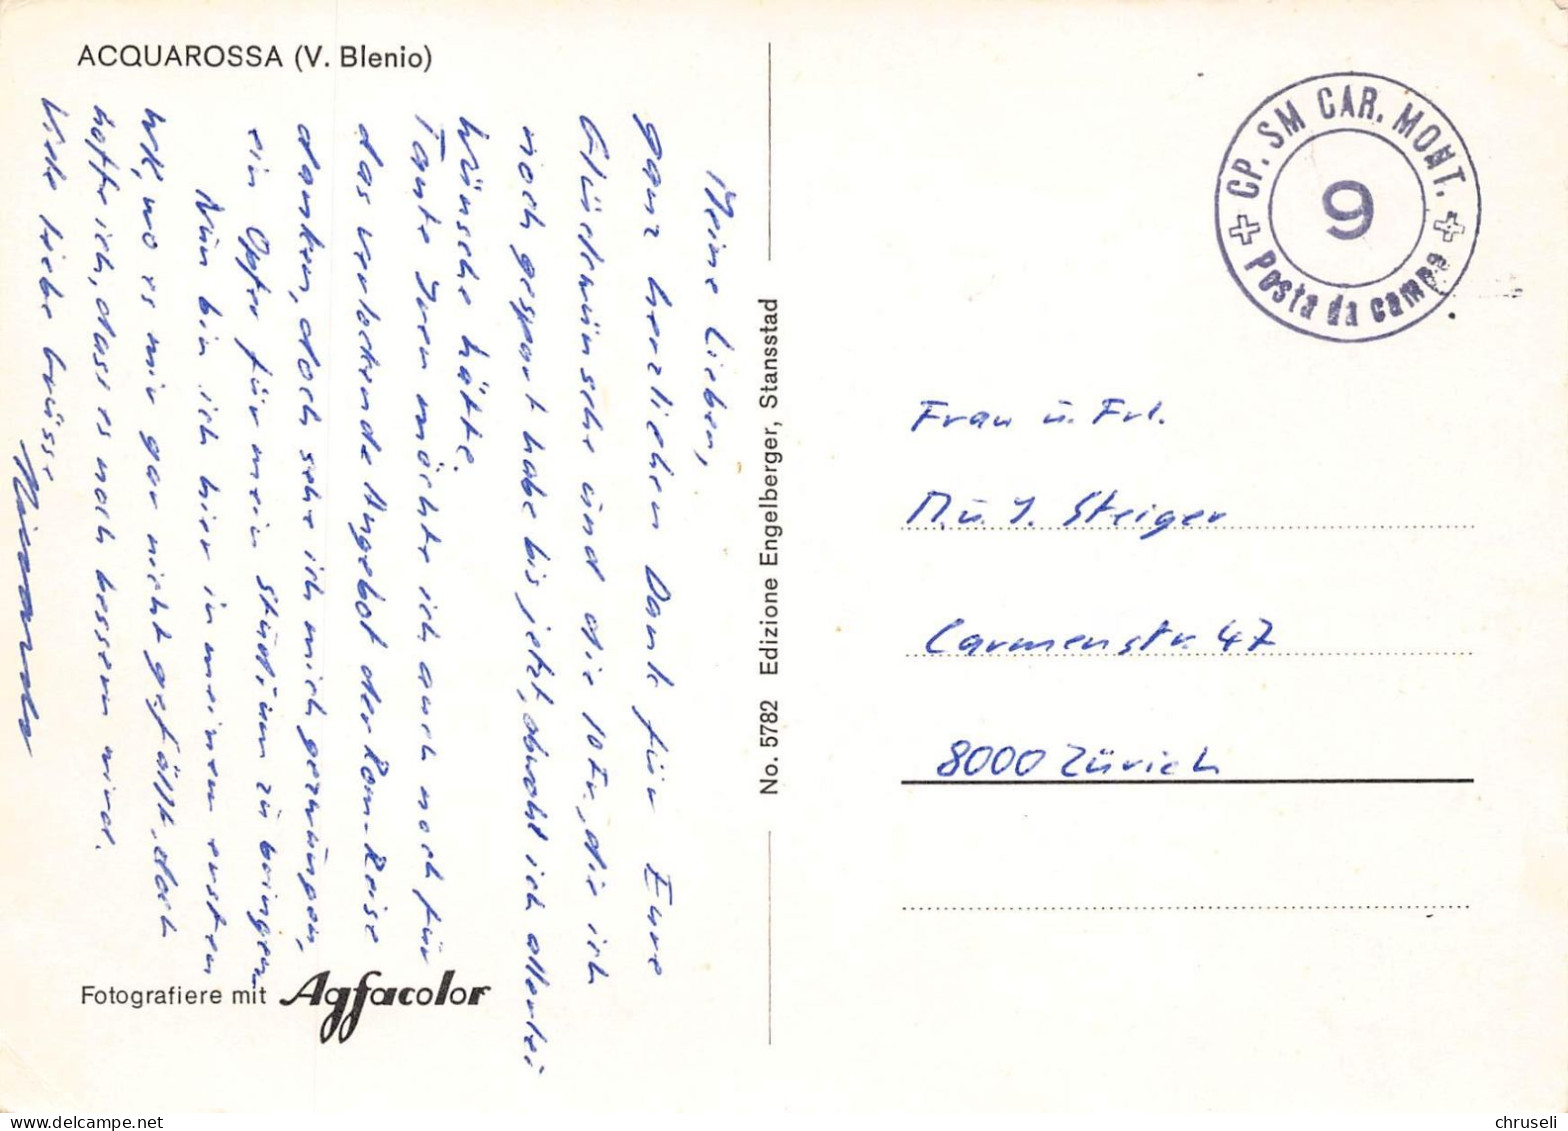 ACQUAROSSA (V. Blenio)
Meine Lieben,
ganz herzlichen Dank für Eure
Glückwünsche und die 10 Fr., die ich
noch gespart habe bis jetzt, obwohl ich allerlei
Wünsche hätte.
Tante Yven möchte ich auch noch für
das verlockende Angebot der Rom-Reise
danken, doch sehe ich mich gezwungen,
ein Opfer für mein Studium zu bringen
Nun bin ich hier in meinem ersten
WK, wo es mir gar nicht gefällt, doch
hoffe ich, dass es noch bessern wird.
Viele liebe Grüsse,
Riccardo
Fotografiere mit Agfacolor
No. 5782 Edizione Engelberger, Stansstad
CP. SM CAR. MONT.
9
Posta da campo
Frau u. Frl.
M. u. Y. Steiger
Carmenstr. 47
8000 Zürich
www.delcampe.net
chruseli